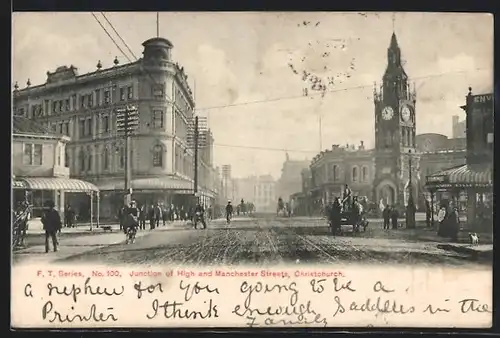 ENV
F. T. Series. No. 100. Junction of High and Manchester Streets, Christchurch.
a nephew for you going to be a
Printer I think enough Saddles in the
Family